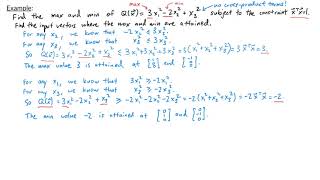 Example:
max min no cross-product terms!
Find the max and min of Q(x⃗) = 3x₁² - 2x₂² + x₃² subject to the constraint x⃗ᵀx⃗ = 1.
Find the input vectors where the max and min are attained.
For any x₂, we know that -2x₂² ≤ 3x₂².
For any x₃, we know that x₃² ≤ 3x₃².
So Q(x⃗) = 3x₁² - 2x₂² + x₃² ≤ 3x₁² + 3x₂² + 3x₃² = 3(x₁² + x₂² + x₃²) = 3x⃗ᵀx⃗ = 3.
The max value 3 is attained at [1 0 0] and [-1 0 0].
For any x₁, we know that 3x₁² ≥ -2x₁².
For any x₃, we know that x₃² ≥ -2x₃².
So Q(x⃗) = 3x₁² - 2x₂² + x₃² ≥ -2x₁² - 2x₂² - 2x₃² = -2(x₁² + x₂² + x₃²) = -2x⃗ᵀx⃗ = -2.
The min value -2 is attained at [0 1 0] and [0 -1 0].